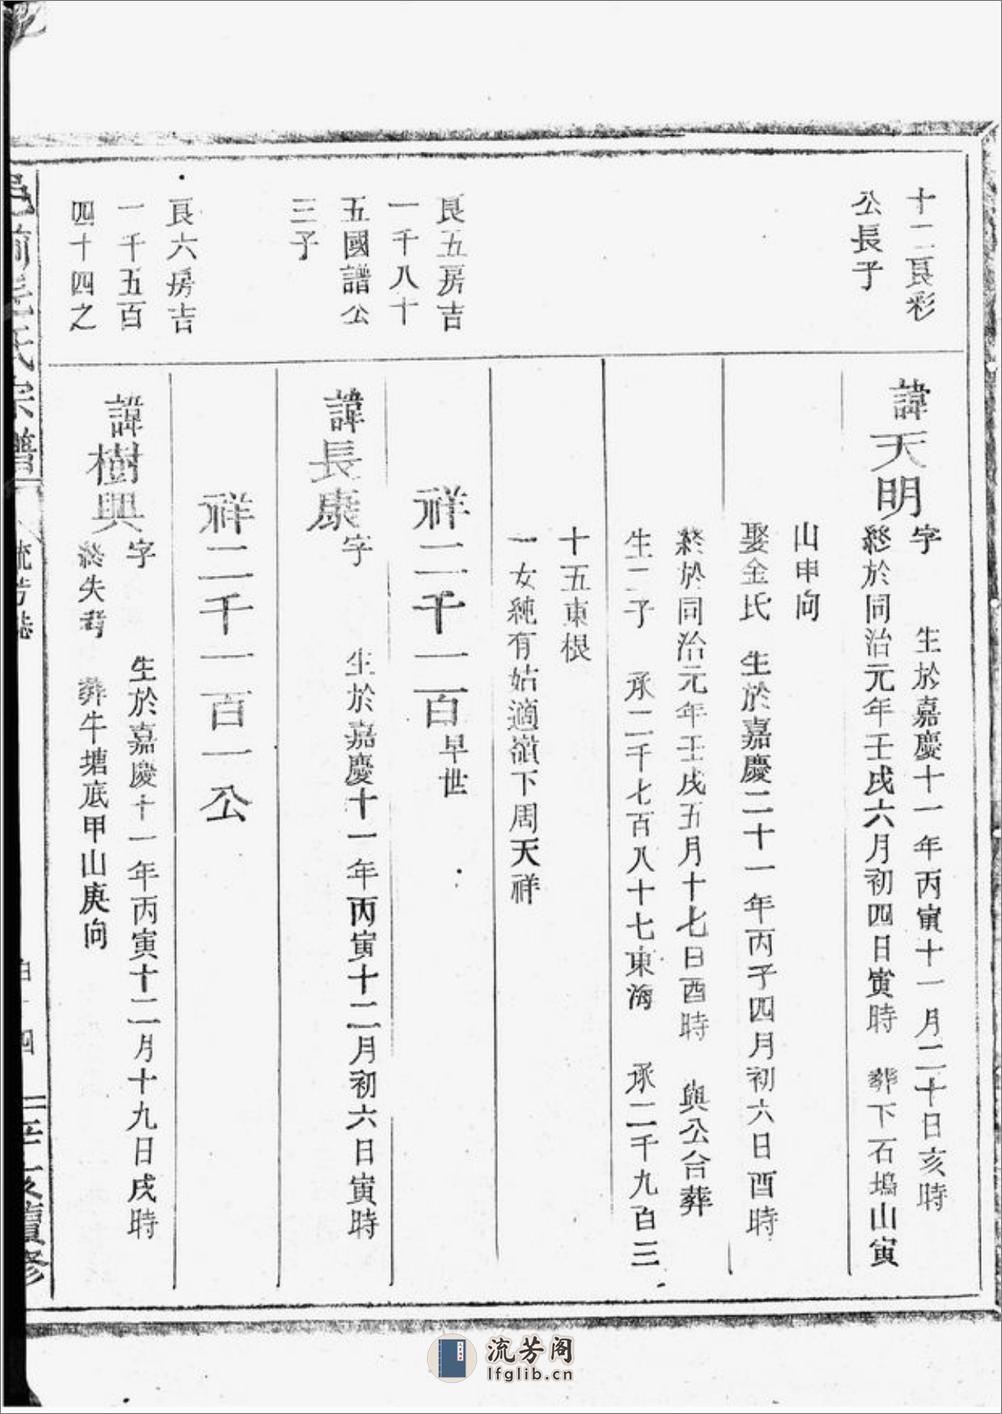 十二良彩
公長子
諱天明
字　生於嘉慶十一年丙寅十一月二十日亥時
終於同治元年壬戌六月初四日寅時　葬下石塢山寅
山申向
娶金氏　生於嘉慶二十一年丙子四月初六日酉時
終於同治元年壬戌五月十七日酉時　與公合葬
生二子　承二千七百八十七東海　承二千九百三
十五東根
一女純有姑適嶺下周天祥
良五房吉
一千八十
五國譜公
三子
祥二千一百早世
諱長康
字　生於嘉慶十一年丙寅十二月初六日寅時
良六房吉
一千五百
四十四之
祥二千一百一公
諱樹興
字　生於嘉慶十一年丙寅十二月十九日戌時
終失考　葬牛塘底甲山庚向
氏宗譜
續修
流芳阁
lfglib.cn